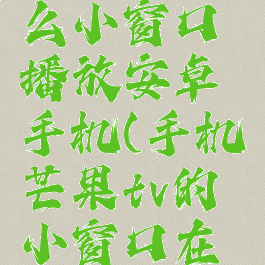 么小窗口
播放安卓
手机(手机
芒果tv的
小窗口在